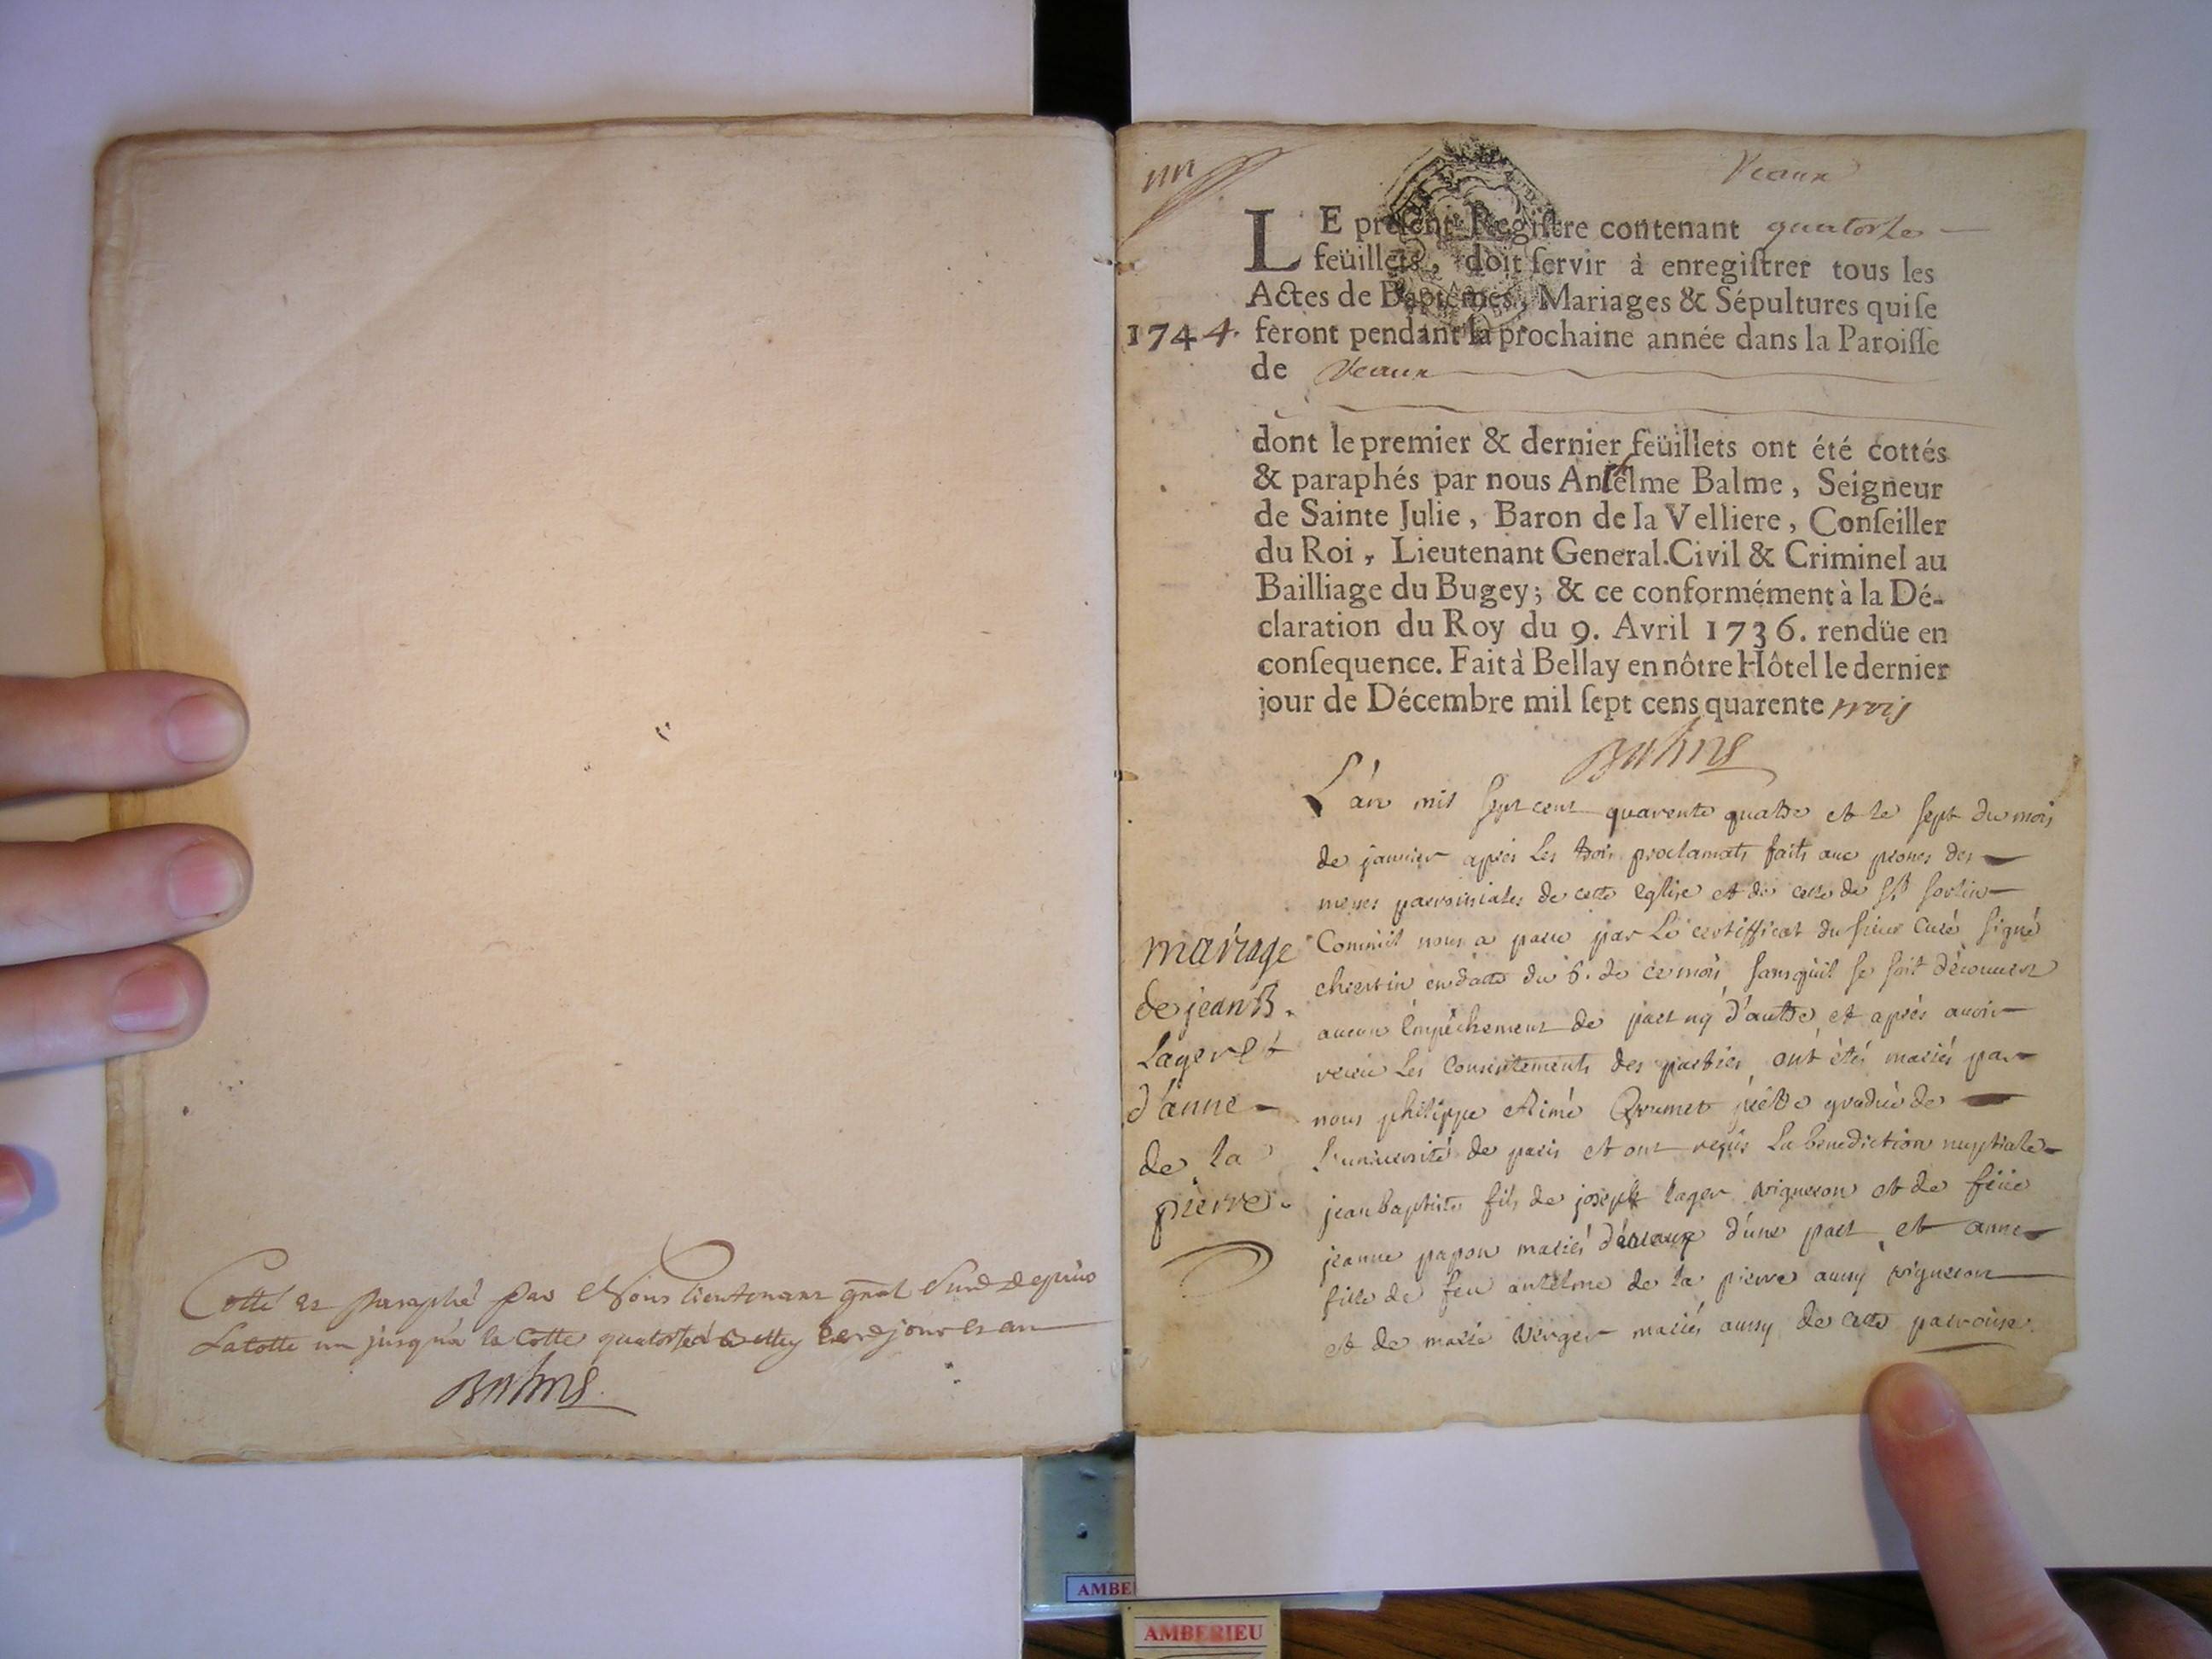 Cotté et paraphé par Nous lieutenant gnal sund depuis
la cotte un jusqu'a la cotte quatorze a Belley lesd jour et an
Balme
un
Veaux
LE preſent Regiſtre contenant quatorze
feüillets, doit ſervir à enregiſtrer tous les
Actes de Baptêmes, Mariages & Sépultures qui ſe
1744. feront pendant la prochaine année dans la Paroiſſe
de Veaux
dont le premier & dernier feüillets ont été cottés
& paraphés par nous Anthelme Balme, Seigneur
de Sainte Julie, Baron de la Velliere, Conſeiller
du Roi, Lieutenant General Civil & Criminel au
Bailliage du Bugey; & ce conformément à la Dé-
claration du Roy du 9. Avril 1736. rendüe en
conſequence. Fait à Bellay en nôtre Hôtel le dernier
jour de Décembre mil ſept cens quarente trois
Balme
mariage
de jean B.
Lager et
d'anne
de la
pierre.
L'an mil sept cent quarente quatre et le sept du mois
de janvier après les trois proclamats faits aux prones des
messes parroissiales de cette eglise et de celle de St Sorlin
Comm'il nous a paru par le certifficat du sieur Curé signé
en datte du 6. de ce mois sans qu'il se soit découvert
aucun émpêchement de part ny d'autre, et après avoir
receu les consentements des parties ont étés mariés par
nous philippe Aimé Brumet prêtre gradué de
l'université de paris et ont reçus la benediction nuptiale
jean baptiste fils de joseph lager vigneron et de feüe
jeanne papon mariés d'une part, et anne
fille de feu antelme de la pierre aussy vigneron
et de marie verger mariés aussy de cette parroisse.
AMBE
AMBERIEU